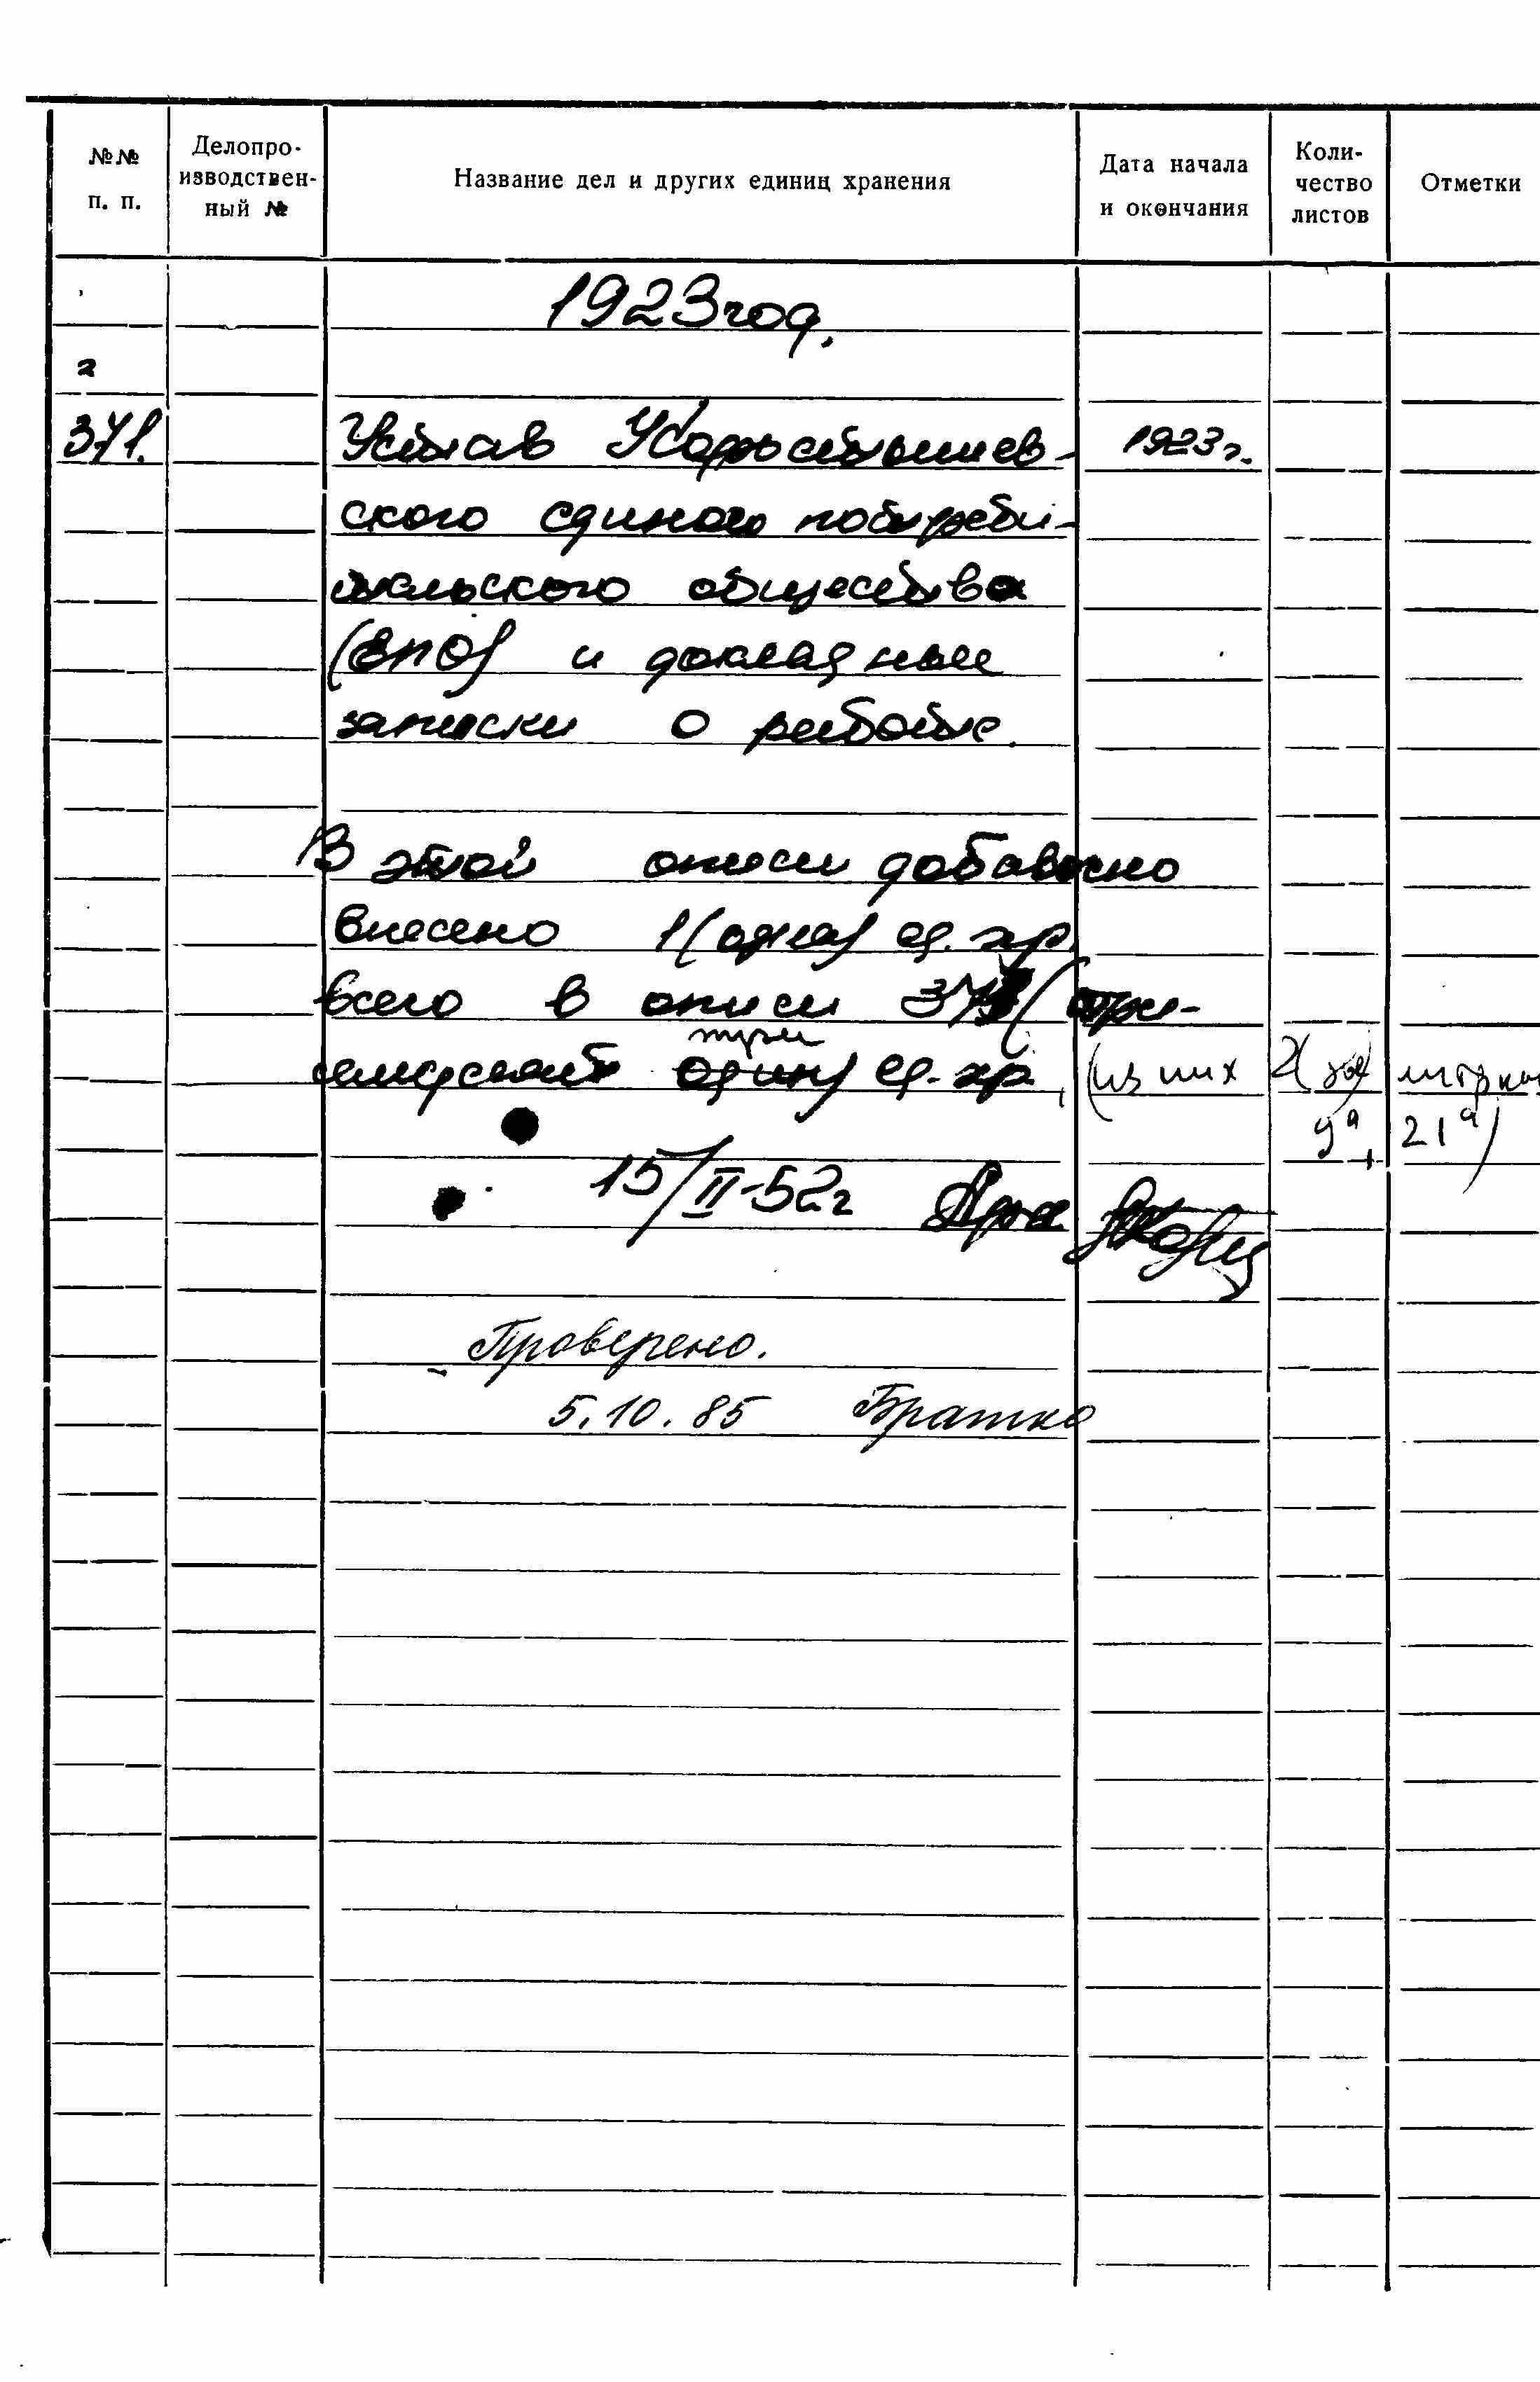 №№ п. п.
Делопро-
изводствен-
ный №
Название дел и других единиц хранения
Дата начала
и окончания
Коли-
чество
листов
Отметки
1923 год.
2
371.
Устав
1923 г.
ского единого потреби-
тельского общества
(ЕПО) и докладные
записки о работе.
В этой описи добавочно
внесено 1 (одна) ед. хр.
всего в описи 373 (три-
три
семьдесят один) ед. хр. (из них 2 (два) литерных
9а, 21а)
15/II-52 г
Проверено.
5.10.85 Братко